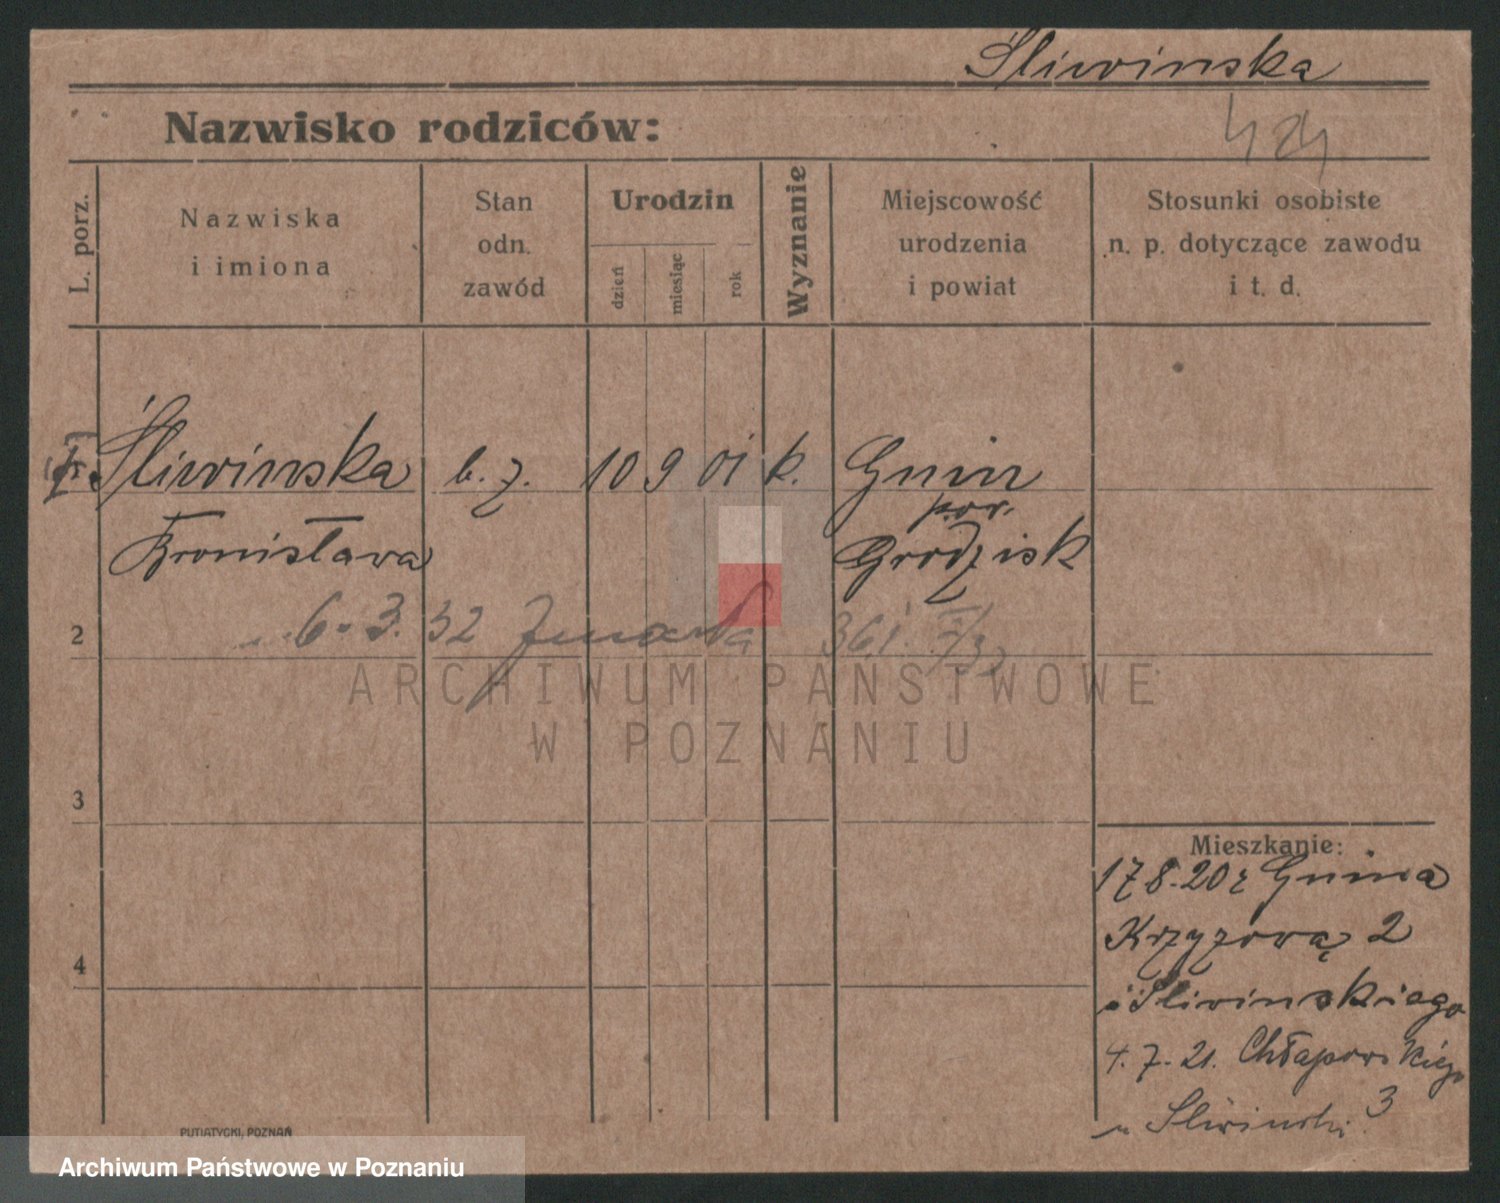 Śliwinska
Nazwisko rodziców:
L. porz.
Nazwiska
i imiona
Stan
odn.
zawód
Urodzin
dzień
miesiąc
rok
Wyznanie
Miejscowość
urodzenia
i powiat
Stosunki osobiste
n. p. dotyczące zawodu
i t. d.
Śliwinska b. z. 10 9 01 k. Gnin
pow.
Bronisława Grodzisk
2 6. 3. 32 zmarła 361
3
4
Mieszkanie:
17 8. 20 z Gnina
Krzyżowa 2
Śliwinskiego
4. 7. 21. Chłapowskiego
3
u Śliwinski
PUTIATYCKI, POZNAŃ
ARCHIWUM PAŃSTWOWE
W POZNANIU
Archiwum Państwowe w Poznaniu